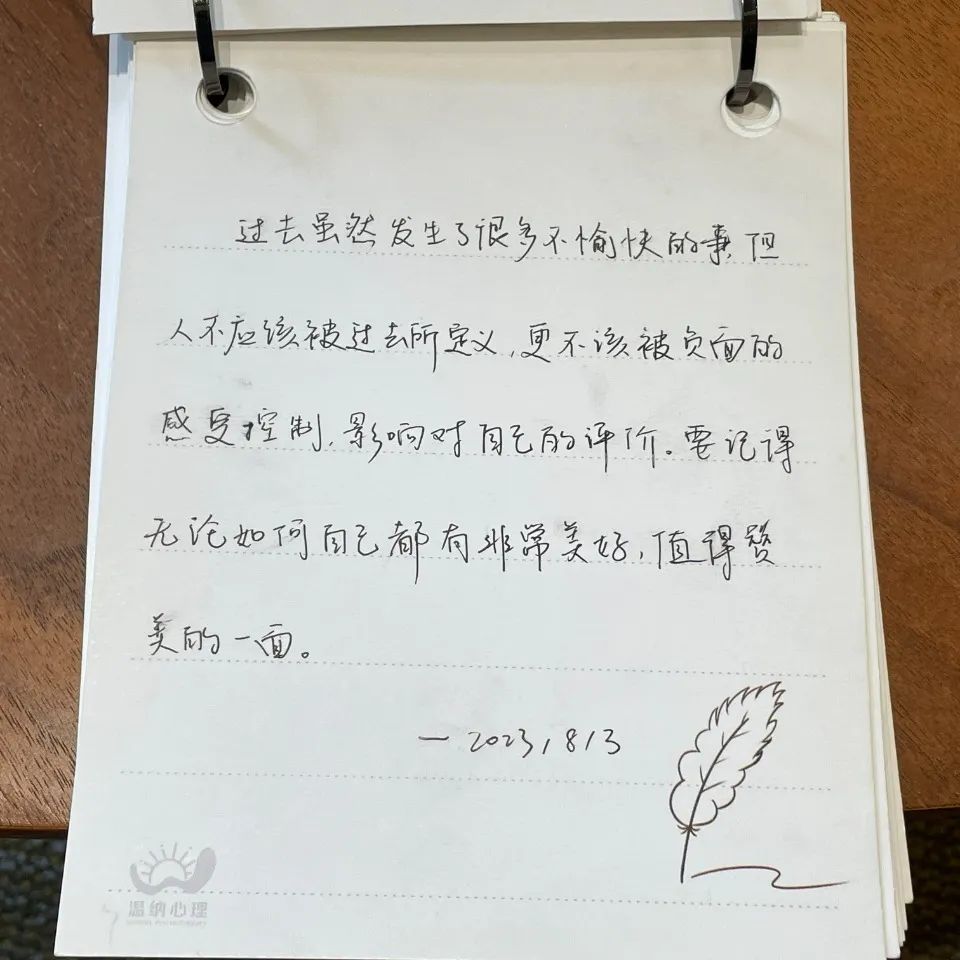 过去虽然发生了很多不愉快的事,但
人不应该被过去所定义,更不该被负面的
感受控制,影响对自己的评价。要记得
无论如何自己都有非常美好,值得赞
美的一面。
— 2023,8,3
温纳心理